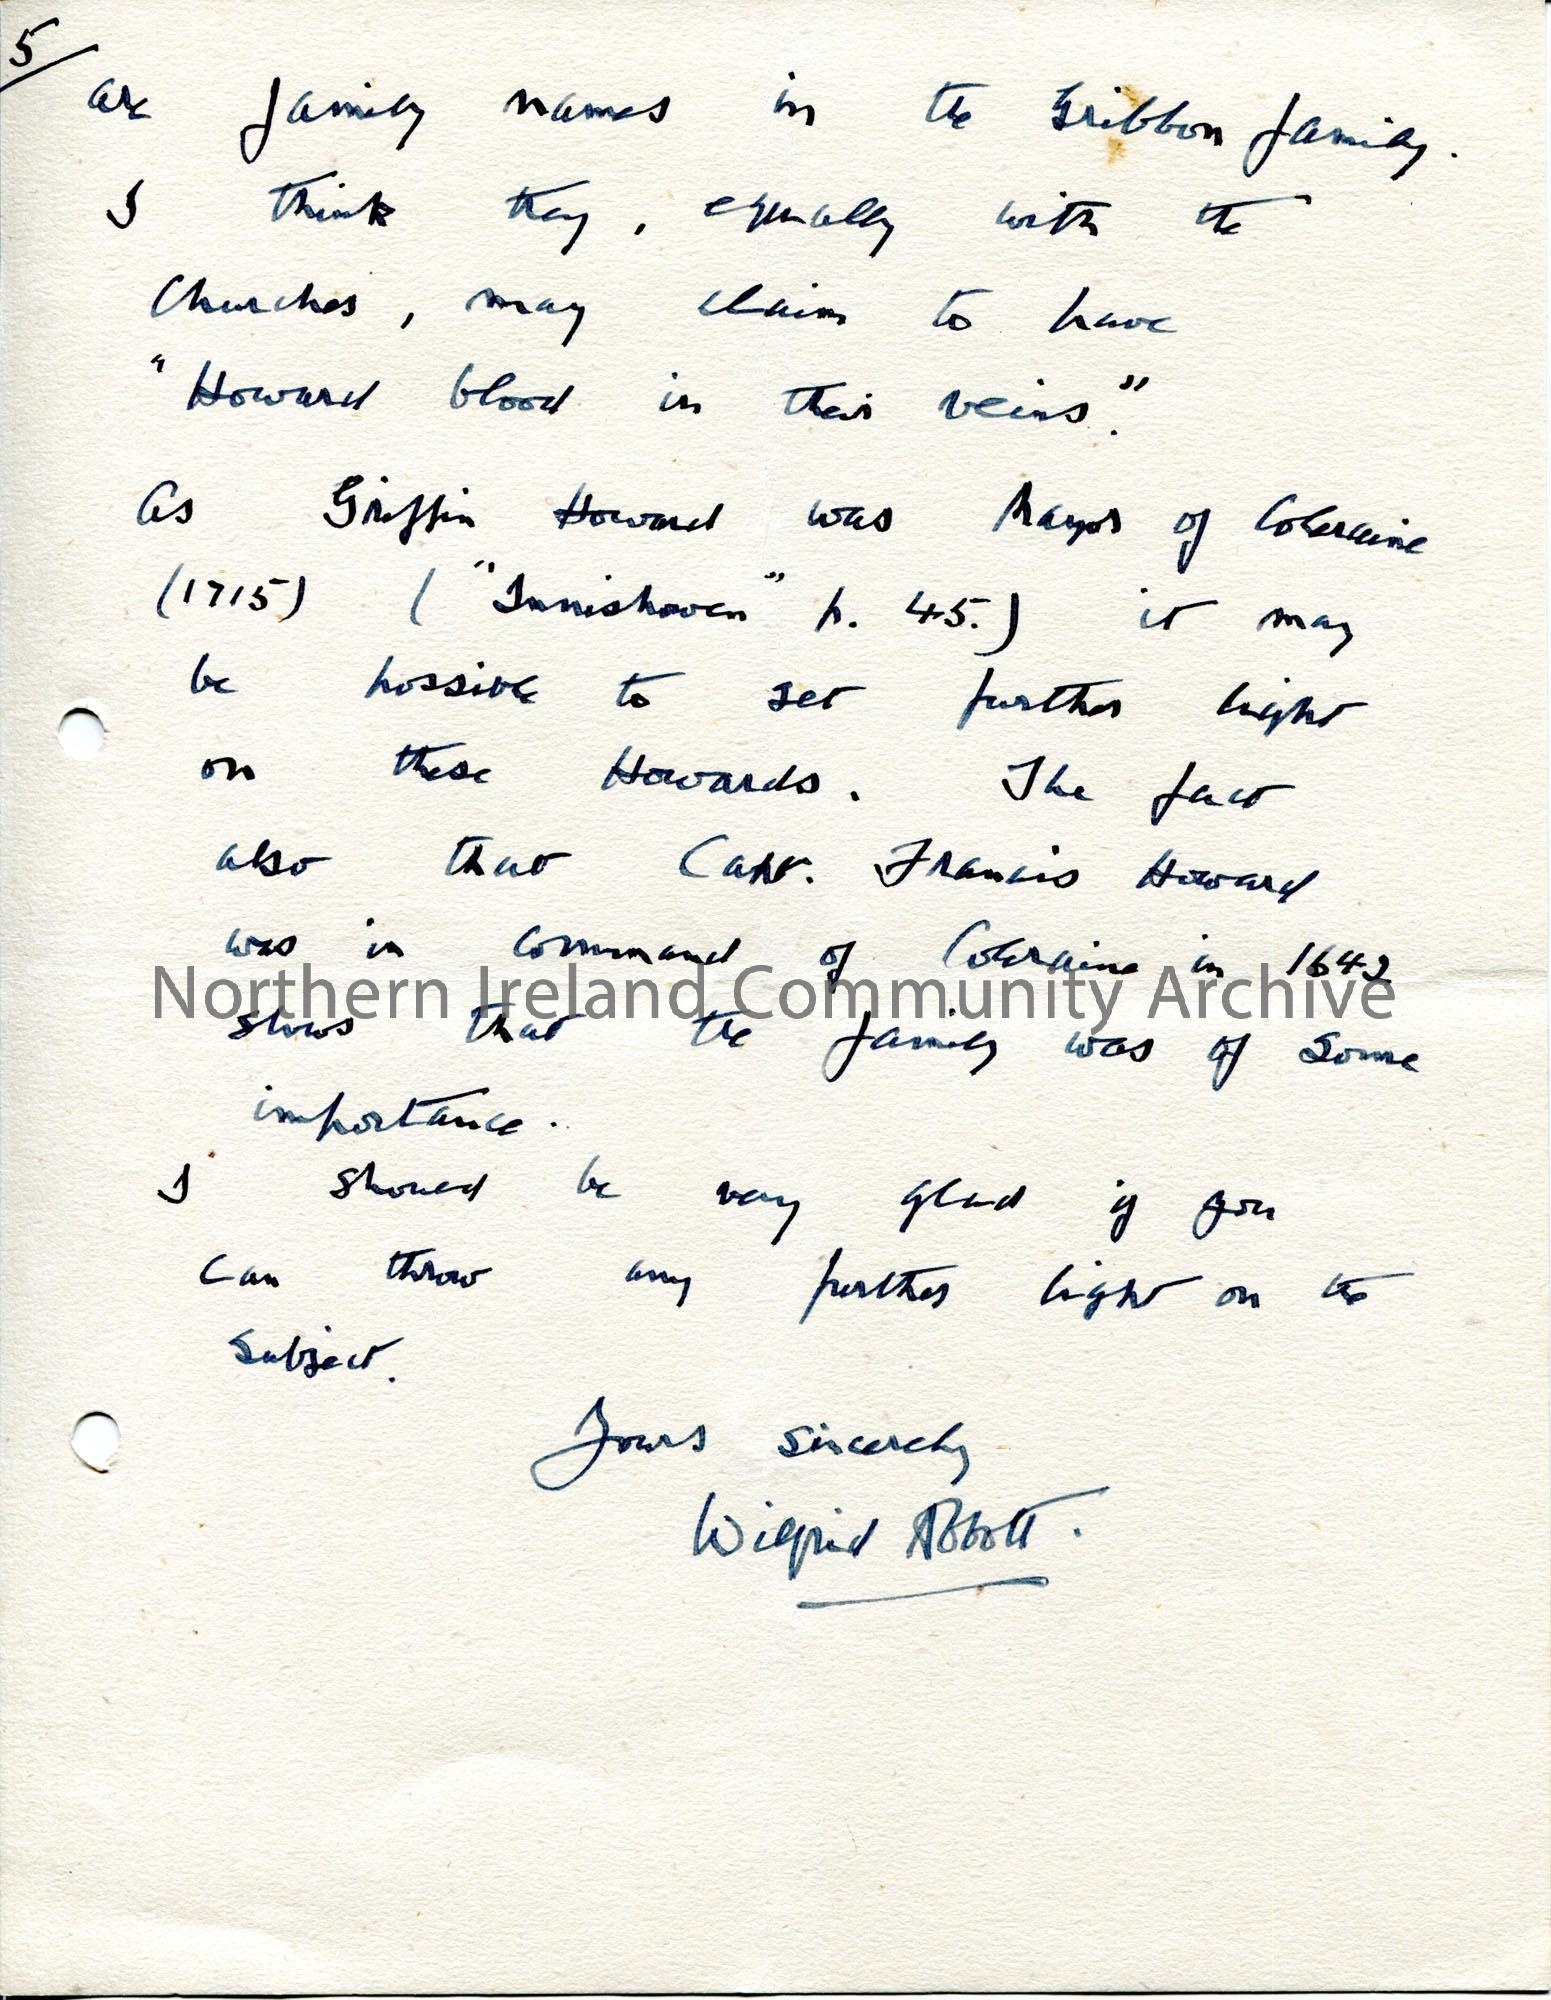 5/
are family names in the Gribbon family.
I think they, equally with the
Churches, may claim to have
"Howard blood in their veins."
As Griffin Howard was Mayor of Coleraine
(1715) ("Innishowen" p. 45.) it may
be possible to get further light
on these Howards. The fact
also that Capt. Francis Howard
was in command of Coleraine in 1642
Northern Ireland Community Archive
shows that the family was of some
importance.
I should be very glad if you
can throw any further light on the
subject.
Yours sincerely
Wilfrid Abbott.